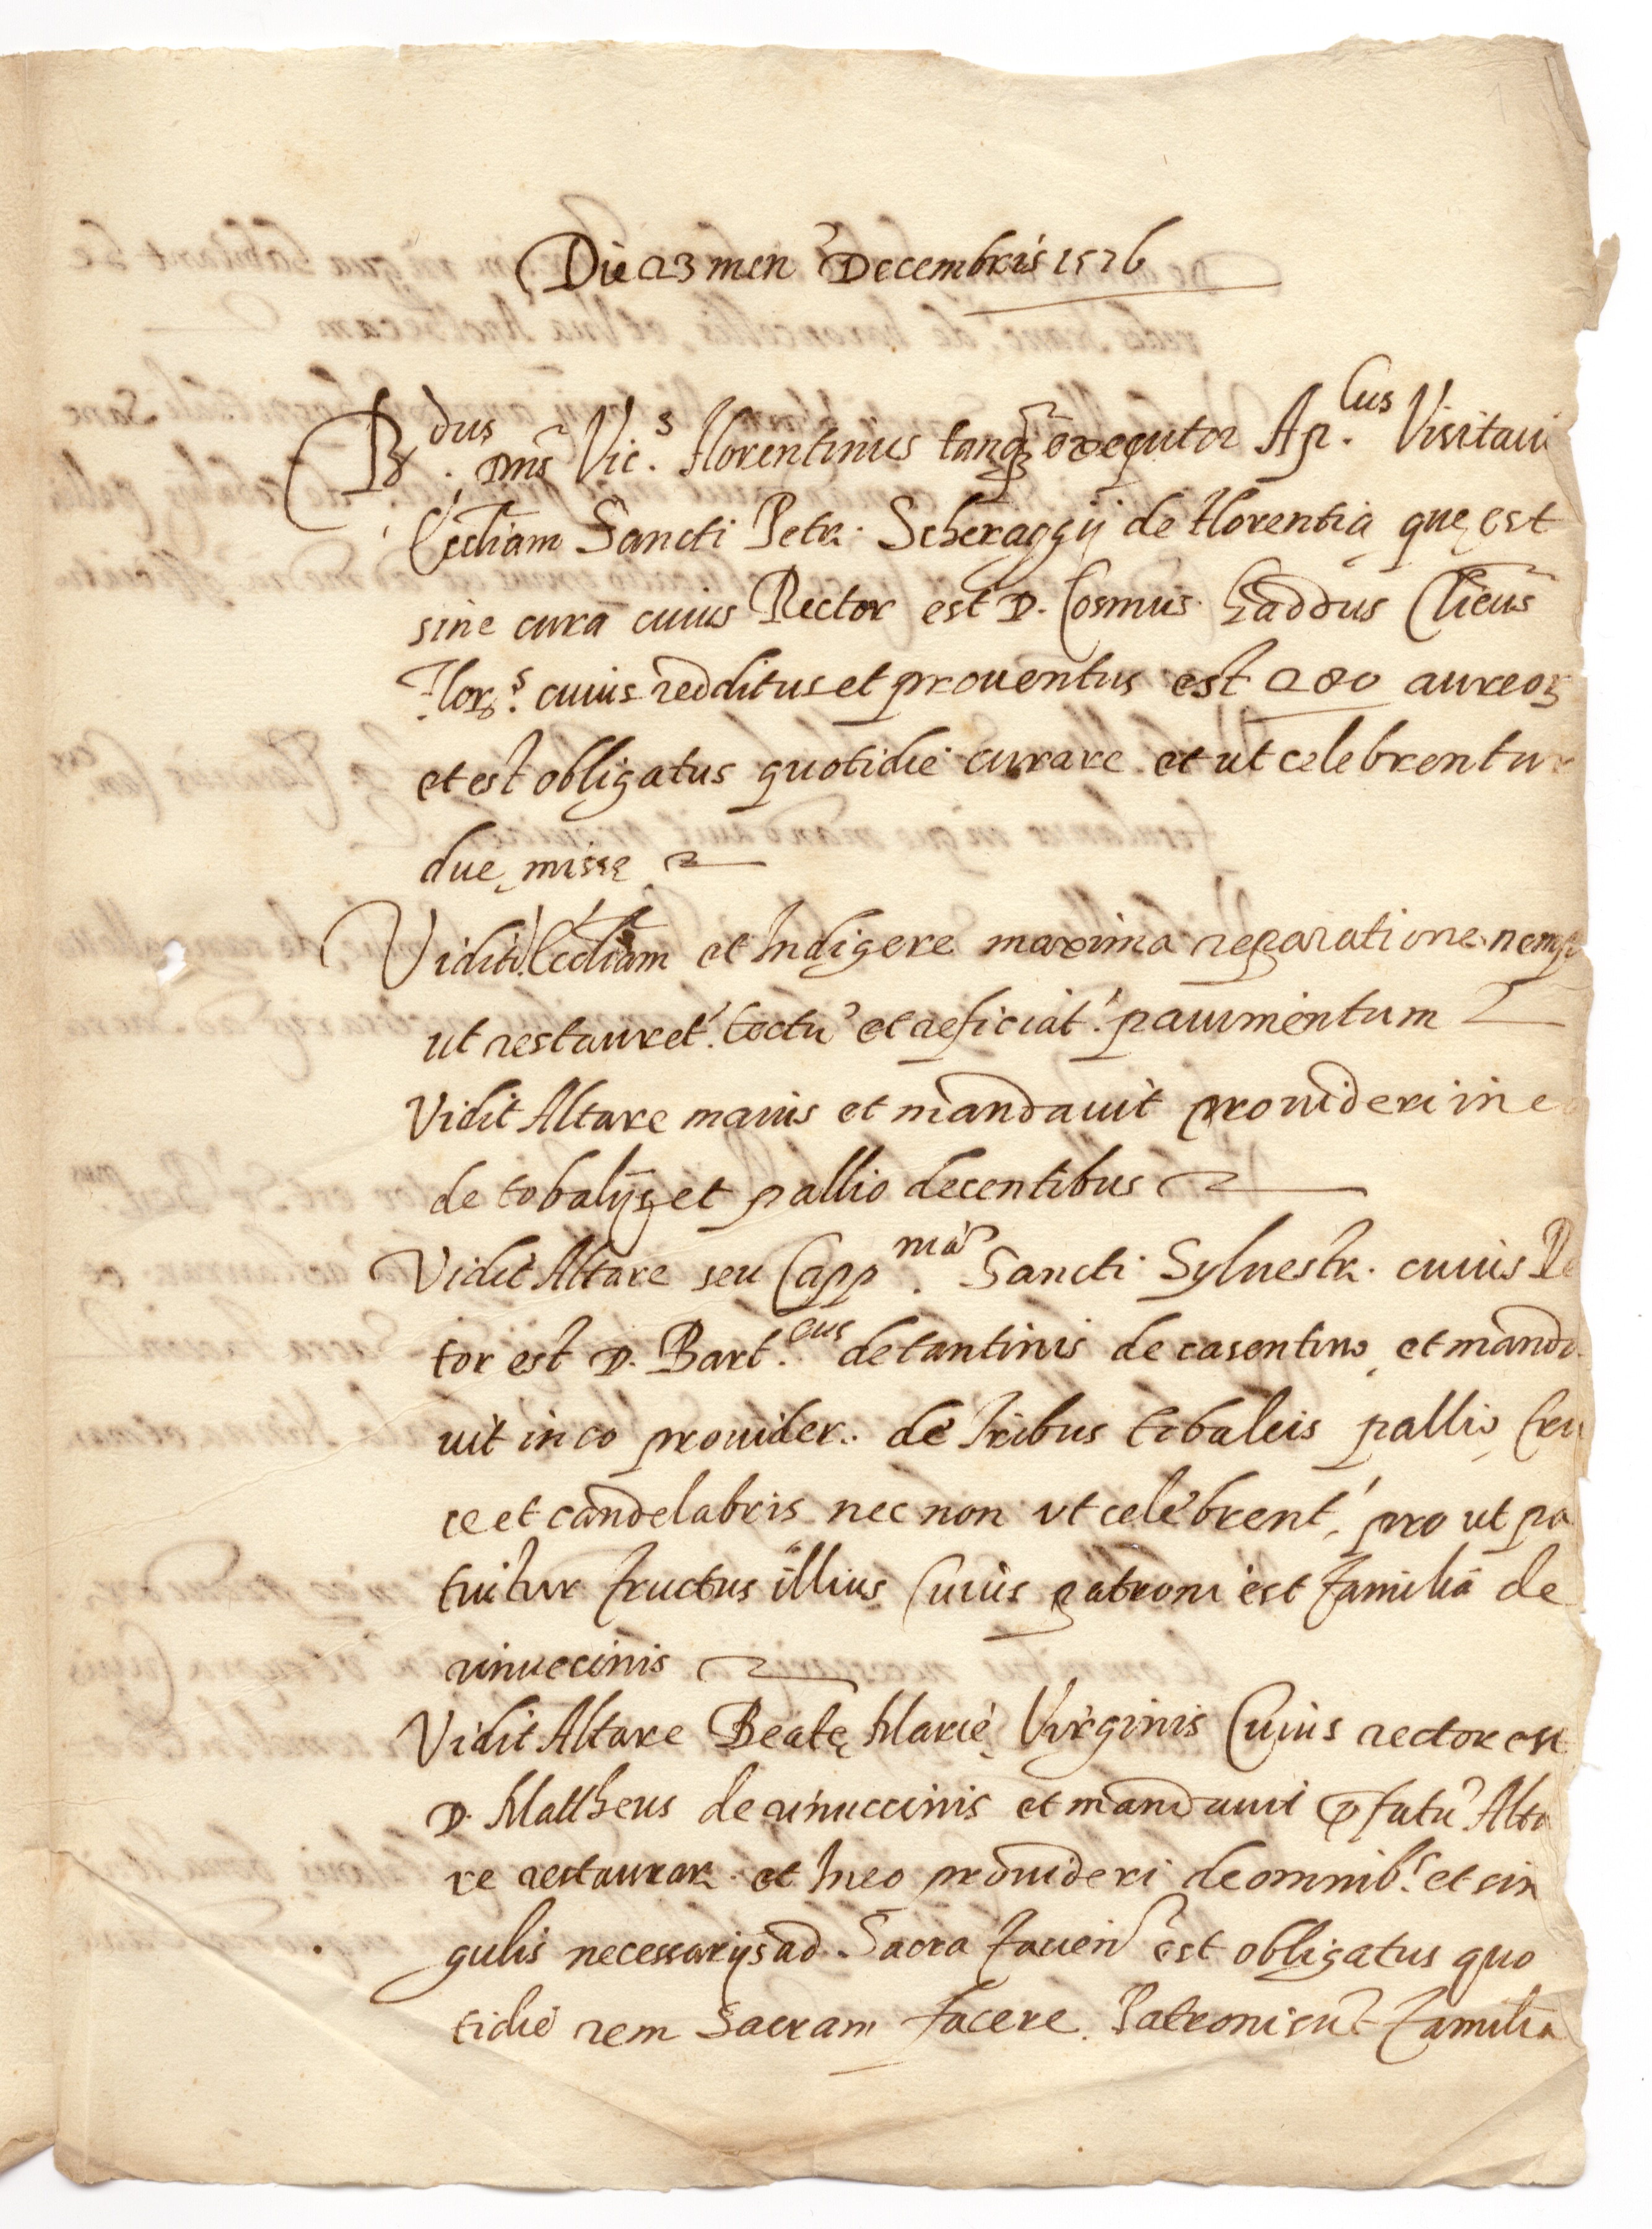 Die 23 men Decembris 1576
R.dus Dns Vic.s Florentinus tanq; executor Ap.lus Visitavi
Eccliam Sancti Petri Scheraggij de Florentia quę est
sine cura cuius Rector est D. Cosmus Gaddus Clicus
Flor.s cuius redditus et prouentus est 280 aureoꝝ
et est obligatus quotidie curare et ut celebrentur
duę missę
Vidit Ecclīam et Indigere maxima reparatione nempe
ut restauret. tectu et reficiat. pauimentum
Vidit Altare maius et mandauit prouideri in eo
de tobalijs et pallio decentibus
Vidit Altare seu Capp.mā Sancti Syluestr. cuius Re
tor est D. Bart.eus de tantinis de casentino et manda
uit in eo prouider. de tribus tobaleis pallio Cru
ce et candelabris nec non vt celebrent, pro ut pa
tuitur fructus illius Cuius patroni est familia de
rinuccinis
Vidit Altare Beatę Marię Virginis Cuius rector est
D. Mattheus de rinuccinis et mandauit p̄fatu Alta
re restaurar. et In eo prouideri de omnib.s et sin
gulis necessarijs ad Sacra facien est obligatus quo
tidie rem Sacram facere. Patroni sut familia